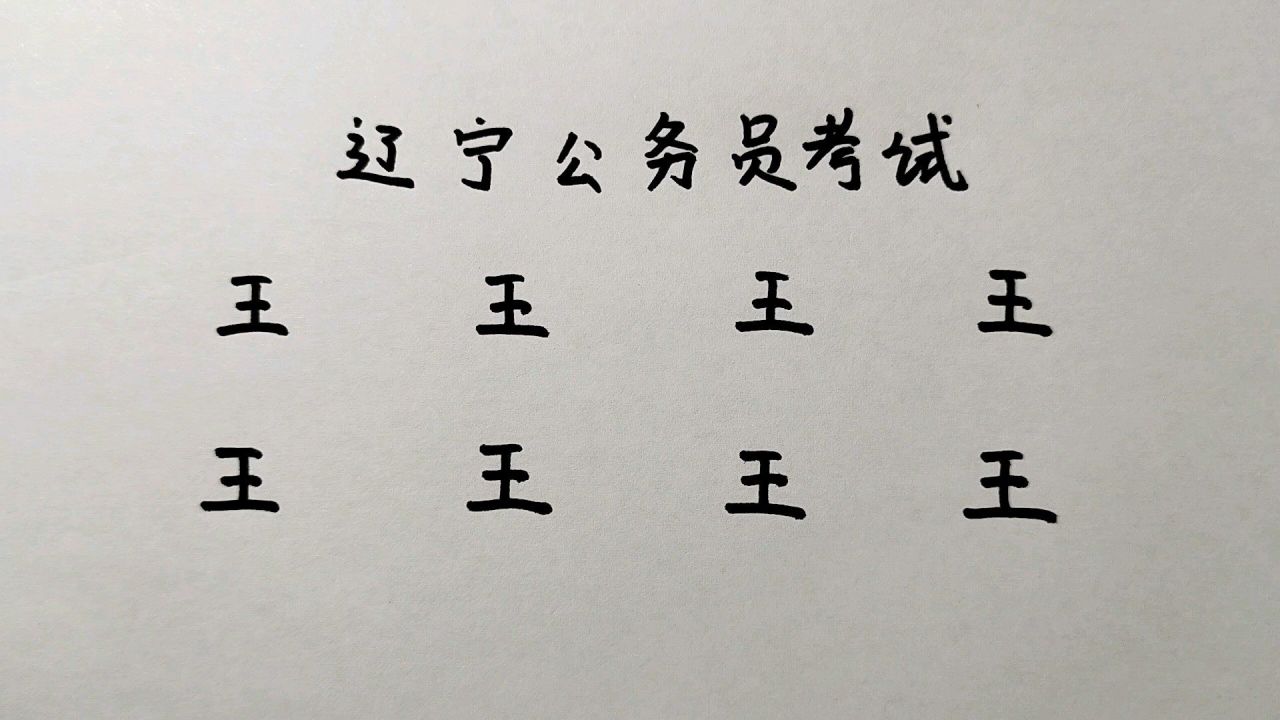 辽宁公务员考试
王 王 王 王
王 王 王 王